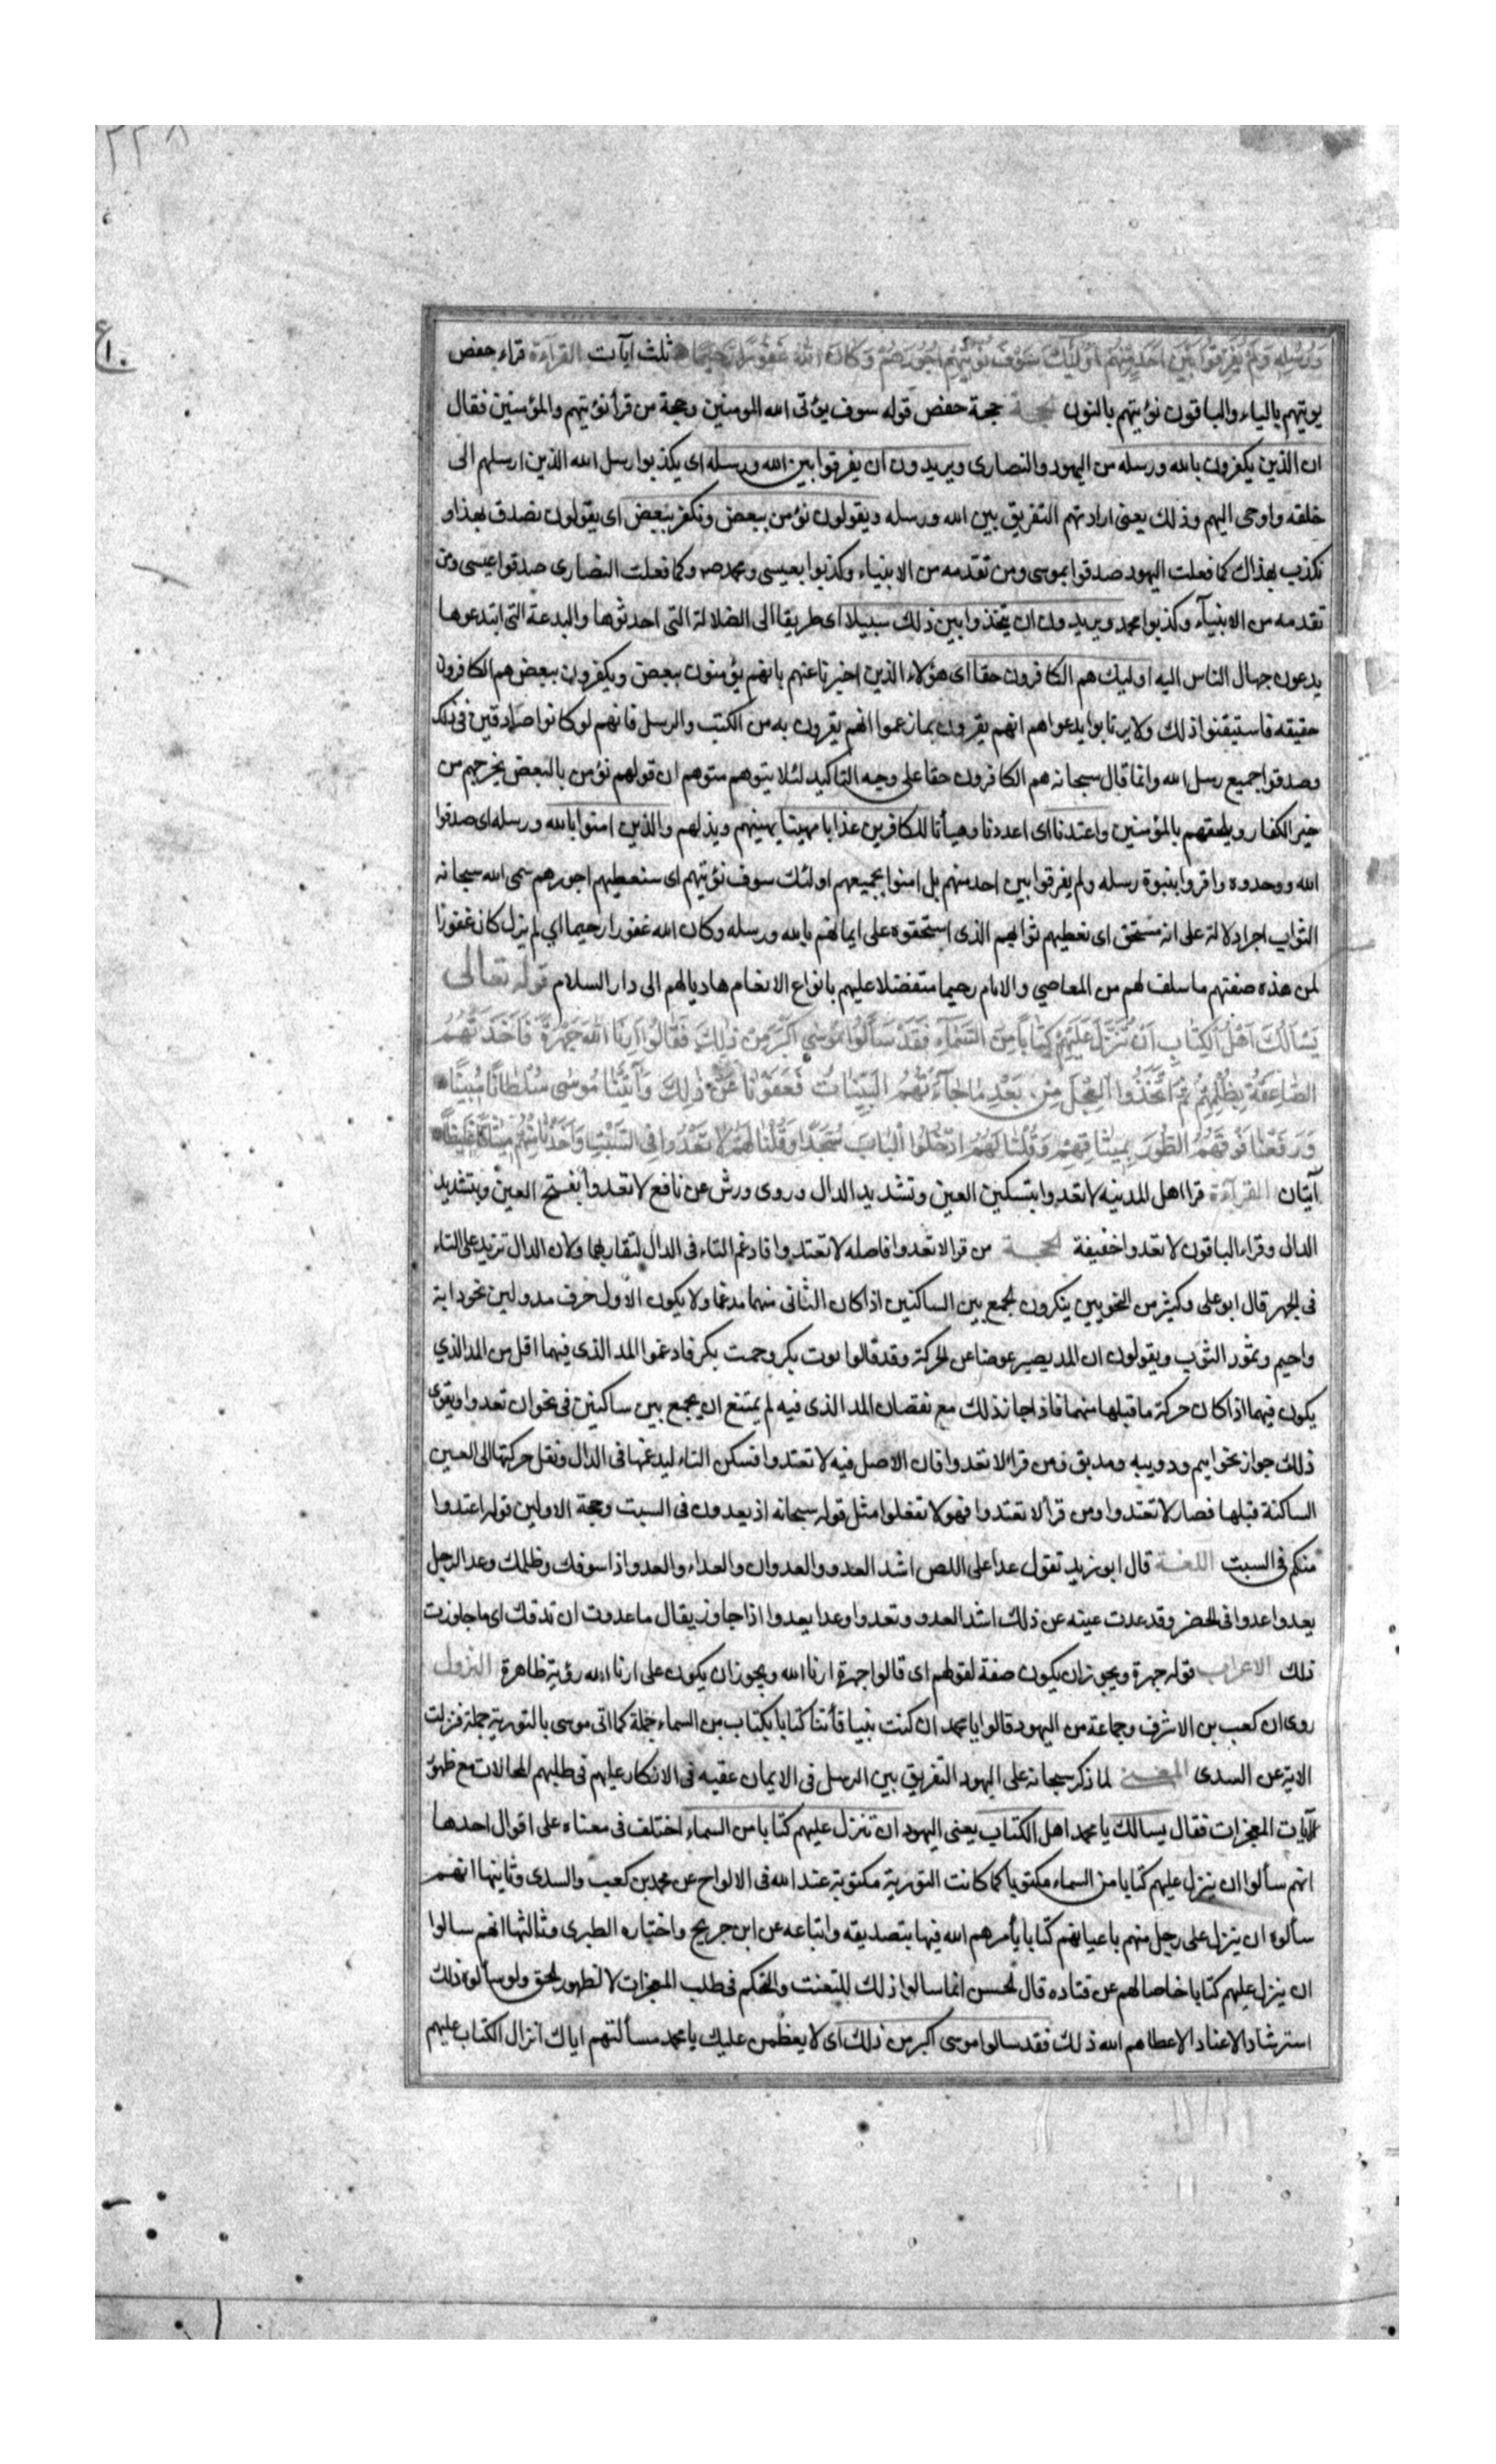 ٢٢٨
ع
١٠
وَرُسُلِهِ وَلَمْ يُفَرِّقُوا بَيْنَ اَحَدٍ مِنْهُمْ اُولٰئِكَ سَوْفَ نُؤْتِيْهِمْ اُجُورَهُمْ وَكَانَ اللهُ غَفُورًا رَحِيمًا ثلث ايآت القراءة قراء حفص
يوتيهم بالياء والباقون نؤتيهم بالنون الحجة حجة حفص قوله سوف يؤتى الله المومنين وحجة من قرأ نؤتيهم والمؤمنين فقال
ان الذين يكفرون بالله ورسله من اليهود والنصارى ويريدون ان يفرقوا بين الله ورسله اى يكذبوا رسل الله الذين ارسلهم الى
خلقه واوحى اليهم وذلك يعنى ارادتهم التفريق بين الله ورسله ويقولون نؤمن ببعض ونكفر ببعض اى يقولون نصدق بهذا و
نكذب بهذاك كما فعلت اليهود صدقوا بموسى ومن تقدمه من الانبياء وكذبوا بعيسى ومحمد صـ وكما فعلت النصارى صدقوا عيسى ومن
تقدمه من الانبيآء وكذبوا محمد ويريدون ان يتخذوا بين ذلك سبيلا اى طريقا الى الضلالة التى احدثوها والبدعة التى ابتدعوها
يدعون جهال الناس اليه اوليك هم الكافرون حقا اى هؤلاء الذين اخبرنا عنهم بانهم يؤمنون ببعض ويكفرون ببعض هم الكافرون
حقيقه فاستيقنوا ذلك ولا يرتابوا بدعواهم انهم يقرون بما زعموا انهم يقرون به من الكتب والرسل فانهم لو كانوا صادقين فى ذلك
وصدقوا جميع رسل الله وانما قال سبحانه هم الكافرون حقا على وجه التاكيد لئلا يتوهم متوهم ان قولهم نؤمن بالبعض يخرجهم من
خير الكفار ويلحقهم بالمؤمنين واعتدنا اى اعددنا وهيأنا للكافرين عذابا مهينا يهينهم ويذلهم والذين امنوا بالله ورسله اى صدقوا
الله ووحدوه واقروا بنبوة رسله ولم يفرقوا بين احد منهم بل امنوا بجميعهم اولئك سوف نؤتيهم اى سنعطيهم اجورهم سمى الله سبحانه
الثواب اجرا دلالة على انه مستحق اى نعطيهم ثوابهم الذى استحقوه على ايمانهم بالله ورسله وكان الله غفورا رحيما اي لم يزل كان غفورا
لمن هذه صفتهم ما سلف لهم من المعاصي والاثام رحيما متفضلا عليهم بانواع الانعام هاديا لهم الى دار السلام قوله تعالى
يَسْأَلُكَ اَهْلُ الْكِتَابِ اَنْ تُنَزِّلَ عَلَيْهِمْ كِتَابًا مِنَ السَّمَآءِ فَقَدْ سَأَلُوا مُوسٰى اَكْبَرَ مِنْ ذٰلِكَ فَقَالُوا اَرِنَا اللهَ جَهْرَةً فَاَخَذَتْهُمُ
الصَّاعِقَةُ بِظُلْمِهِمْ ثُمَّ اتَّخَذُوا الْعِجْلَ مِنْ بَعْدِ مَا جَآءَتْهُمُ الْبَيِّنَاتُ فَعَفَوْنَا عَنْ ذٰلِكَ وَآتَيْنَا مُوسٰى سُلْطَانًا مُبِينًا
وَرَفَعْنَا فَوْقَهُمُ الطُّورَ بِمِيثَاقِهِمْ وَقُلْنَا لَهُمُ ادْخُلُوا الْبَابَ سُجَّدًا وَقُلْنَا لَهُمْ لَا تَعْدُوا فِى السَّبْتِ وَاَخَذْنَا مِنْهُمْ مِيثَاقًا غَلِيظًا
آيتان القرآءة قرا اهل المدينه لا تعدوا بتسكين العين وتشديد الدال وروى ورش عن نافع لا تعدوا بفتح العين وبتشديد
الدال وقراء الباقون لا تعدوا خفيفة الحجـة من قرا لا تعدوا فاصله لا تعتدوا فادغم التاء فى الدال لتقاربهما ولان الدال تزيد على التاء
فى الجهر قال ابو على وكثير من النحويين ينكرون الجمع بين الساكنين اذا كان الثانى منهما مدغما ولا يكون الاول حرف مد ولين نحو دابة
واحيم وتمود الثوب ويقولون ان المد يصير عوضا عن الحركة وقد قالوا بوت بكر وحمت بكر فادغموا المد الذى فيهما اقل من المد الذي
يكون فيهما اذا كان حركة ما قبلها منهما فاذا جاز ذلك مع نقصان المد الذى فيه لم يمتنع ان يجمع بين ساكنين فى نحو ان تعدوا ويقوى
ذلك جواز نحو اصيم ودويبه ومديق فمن قراء لا تعدوا فان الاصل فيه لا تعتدوا فسكن التاء ليدغمها فى الدال ونقل حركتها الى العين
الساكنة قبلها فصار لا تعتدوا ومن قرأ لا تعتدوا فهو لا تفعلوا مثل قوله سبحانه اذ يعدون فى السبت وحجة الاولين قوله اعتدوا
منكم فى السبت اللغـة قال ابو زيد تقول عدا على اللص اشد العدو والعدوان والعداء والعدو اذا سوفك وظلمك وعدا الرجل
يعدوا عدوا فى الحضر وقد عدت عينه عن ذلك اشد العدو وتعدوا وعدا يعدوا اذا جاوز يقال ما عدوت ان تدقك اى ما جاوزت
تلك الاعراب قوله جهرة ويجوز ان يكون صفة لقولهم اى قالوا جهرة ارنا الله ويجوز ان يكون على ارنا الله رؤية ظاهرة النزول
روى ان كعب بن الاشرف وجماعة من اليهود قالوا يا محمد ان كنت نبيا فأتنا كتابا بكتاب من السماء جملة كما اتى موسى بالتورية جملة فنزلت
الاية عن السدى المعنـى لما ذكر سبحانه على اليهود التفريق بين الرسل فى الايمان عقبه فى الانكار عليهم فى طلبهم المحالات مع ظهور
الآيات المعجزات فقال يسالك يا محمد اهل الكتاب يعنى اليهود ان تنزل عليهم كتابا من السماء اختلف فى معناه على اقوال احدها
انهم سألوا ان ينزل عليهم كتابا من السماء مكتوبا كما كانت التورية مكتوبة عند الله فى الالواح عن محمد بن كعب والسدى وثانيها انهم
سألوه ان ينزل على رجل منهم باعيانهم كتابا يأمرهم الله فيها بتصديقه واتباعه عن ابن جريح واختياره الطبرى وثالثها انهم سالوا
ان ينزل عليهم كتابا خاصا لهم عن قتاده قال الحسن انما سالوا ذلك للتعنت والتحكم فى طلب المعجزات لا لظهور الحق ولو سألوه ذلك
استرشادا لا عنادا لاعطاهم الله ذلك فقد سالوا موسى اكبر من ذلك اى لا يعظمن عليك يا محمد مسألتهم اياك انزال الكتاب عليهم